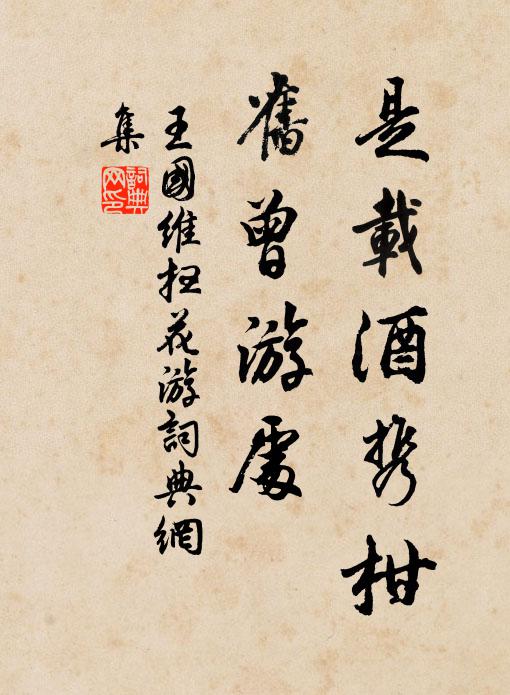 是載酒携柑
舊曾游處
王國維扫花游詞典網
集
詞典
网印